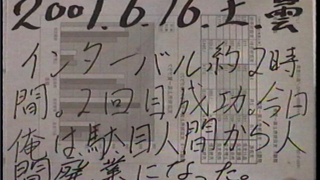 2001.6.16.土.雲
インターバル約2時
間。2回目成功。今日
俺は駄目人間から人
間廃業になった。